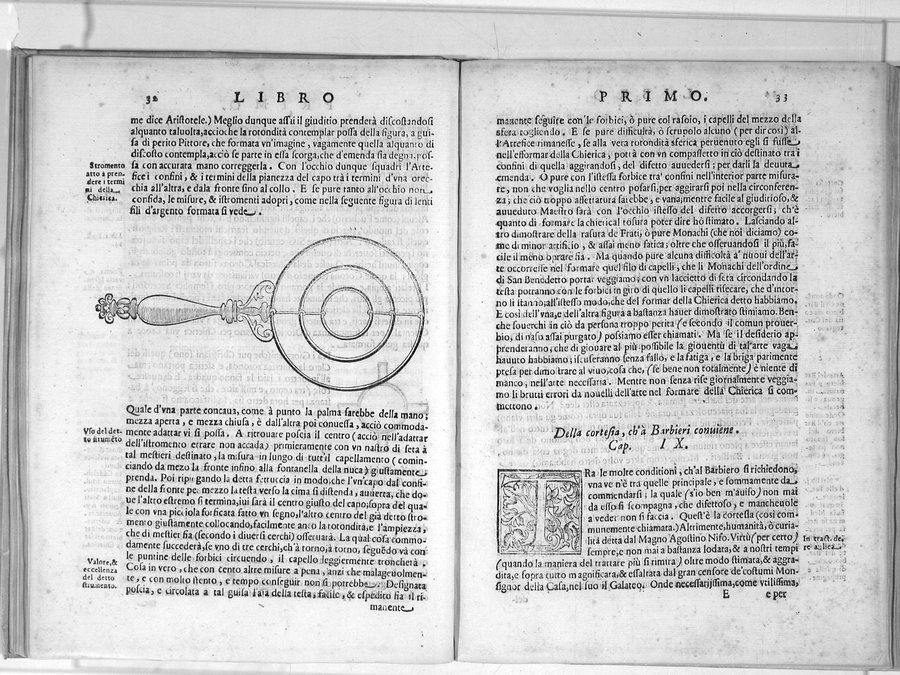 32 LIBRO
me dice Aristotele.) Meglio dunque assai il giuditio prenderà discostandosi
alquanto talvolta, acciò che la rotondità contemplar possa della figura, a gui-
sa di perito Pittore, che formata vn'imagine, vagamente quella alquanto di
discosto contempla, acciò se parte in essa scorga, che d'emenda sia degna, pos-
sa con accurata mano correggerla. Con l'occhio dunque squadri l'Arte-
fice i confini, & i termini della pianezza del capo trà i termini d'vna orec-
chia all'altra, e dala fronte sino al collo. E se pure tanto all'occhio non
confida, le misure, & istromenti adopri, come nella seguente figura di lenti
fili d'argento formata si vede.
Stromento
atto a pren-
dere i termi
ni della
Chierica.
Quale d'vna parte concaua, come à punto la palma sarebbe della mano;
mezza aperta, e mezza chiusa, è dall'altra poi conuessa, acciò accommoda-
mente adattar vi si possa. A ritrouare poscia il centro (acciò nell'adattar
dell'istromento errare non accada) primieramente con vn nastro di seta à
tal mestieri destinato, la misura in lungo di tutt'il capellamento (comin-
ciando da mezo la fronte infino alla fontanella della nuca) giustamente
prenda. Poi ripigando la detta fettuccia in modo, che l'vn capo dal confi-
ne della fronte per mezzo la testa verso la cima si distenda, auuerta, che do-
ue l'altro estremo si termina, iui sarà il centro giusto del capo, sopra del qua-
le con vna picciola forficata fatto vn segno, l'altro centro del già detto stro-
mento giustamente collocando, facilmente anco la rotondità, e l'ampiezza,
che di mestier sia (secondo i diuersi cerchi) osseruarà. La qual cosa commo-
damente succederà, se vno di tre cerchi, ch'à torno, à torno, seguēdo và con
le puntine delle forbici circuendo, il capello leggiermente troncherà.
Cosa in vero, che con cento altre misure a pena, anzi che malageuolmen-
te, e con molto stento, e tempo conseguir non si potrebbe. Designata
poscia, e circolata a tal guisa l'aia della testa, facile, & espedito sia il ri-
manente
Vso del det-
to strumēto
Valore, &
eccellenza
del detto
strumento.
PRIMO. 33
manente seguire con le forbici, ò pure col rasoio, i capelli del mezzo della
sfera togliendo. E se pure difficultà, ò scrupolo alcuno (per dir così) al-
l'Artefice rimanesse, se alla vera rotondità sferica peruenuto egli si fusse
nell'esformar della Chierica, potrà con vn compassetto in ciò destinato trà i
confini di quella aggirandosi, del difetto auuedersi; per darli la deuuta
emenda. O pure con l'istessa forbice trà confini nell'interior parte misura-
re, non che voglia nello centro posarsi, per aggirarsi poi nella circonferen-
za; che ciò troppo affettatura sarebbe, e vana, mentre facile al giudirioso, &
auueduto Maestro sarà con l'occhio istesso del difetto accorgersi; ch'è
quanto di formare la chierical tosura poter dire hò stimato. Lasciando al-
tro dimostrare della rasura de Frati, ò pure Monachi (che noi diciamo) co-
me di minor artificio, & assai meno fatica; oltre che osseruandosi il più, fa-
cile il meno oprare sia. Ma quando pure alcuna difficoltà a' nuoui dell'ar-
te occorresse nel formare quel filo di capelli, che li Monachi dell'ordine
di San Benedetto portar veggiamo; con vn laccietto di seta circondando la
testa potranno con le forbici in giro di quello li capelli risecare, che d'incor-
no li stanno, all'istesso modo, che del formar della Chierica detto habbiamo.
E così dell'vna, e dell'altra figura a bastanza hauer dimostrato stimiamo. Ben-
che souerchi in ciò da persona troppo perita (e secondo il comun prouer-
bio, di naso assai purgato) possiamo esser chiamati. Ma se il desiderio ap-
prenderanno, che di giouare al più possibile la giouentù di tal'arte vaga
hauuto habbiamo; iscuseranno senza fallo, e la fatiga, e la briga parimente
presa per dimostrare al viuo, cosa che, (se bene non totalmente) è niente di
manco, nell'arte necessaria. Mentre non senza rise giornalmente veggia-
mo li brutti errori da nouelli dell'arte nel formare della Chierica si com-
mettono.
Della cortesia, ch'à Barbieri conuiene.
Cap. IX.
TRa le molte conditioni, ch'al Barbiero si richiedono,
vna ve n'è tra quelle principale, e sommamente da
commendarsi, la quale (s'io ben m'auiso) non mai
da esso si scompagna, che difettoso, e mancheuole
a veder non si faccia. Quest'è la cortesia (così com-
munemente chiamata.) Altrimente, humanità, ò curia-
lità detta dal Magno Agostino Nifo. Virtù (per certo)
sempre, e non mai a bastanza lodata, & a nostri tempi
(quando la maniera del trattare più si rimira) oltre modo stimata, & aggra-
dita, e sopra tutto magnificata, & essaltata dal gran censore de' costumi Mon-
signor della Casa, nel suo il Galateo. Onde necessarijssima, come vtilissima,
E e per
In tract. de
re aulica.